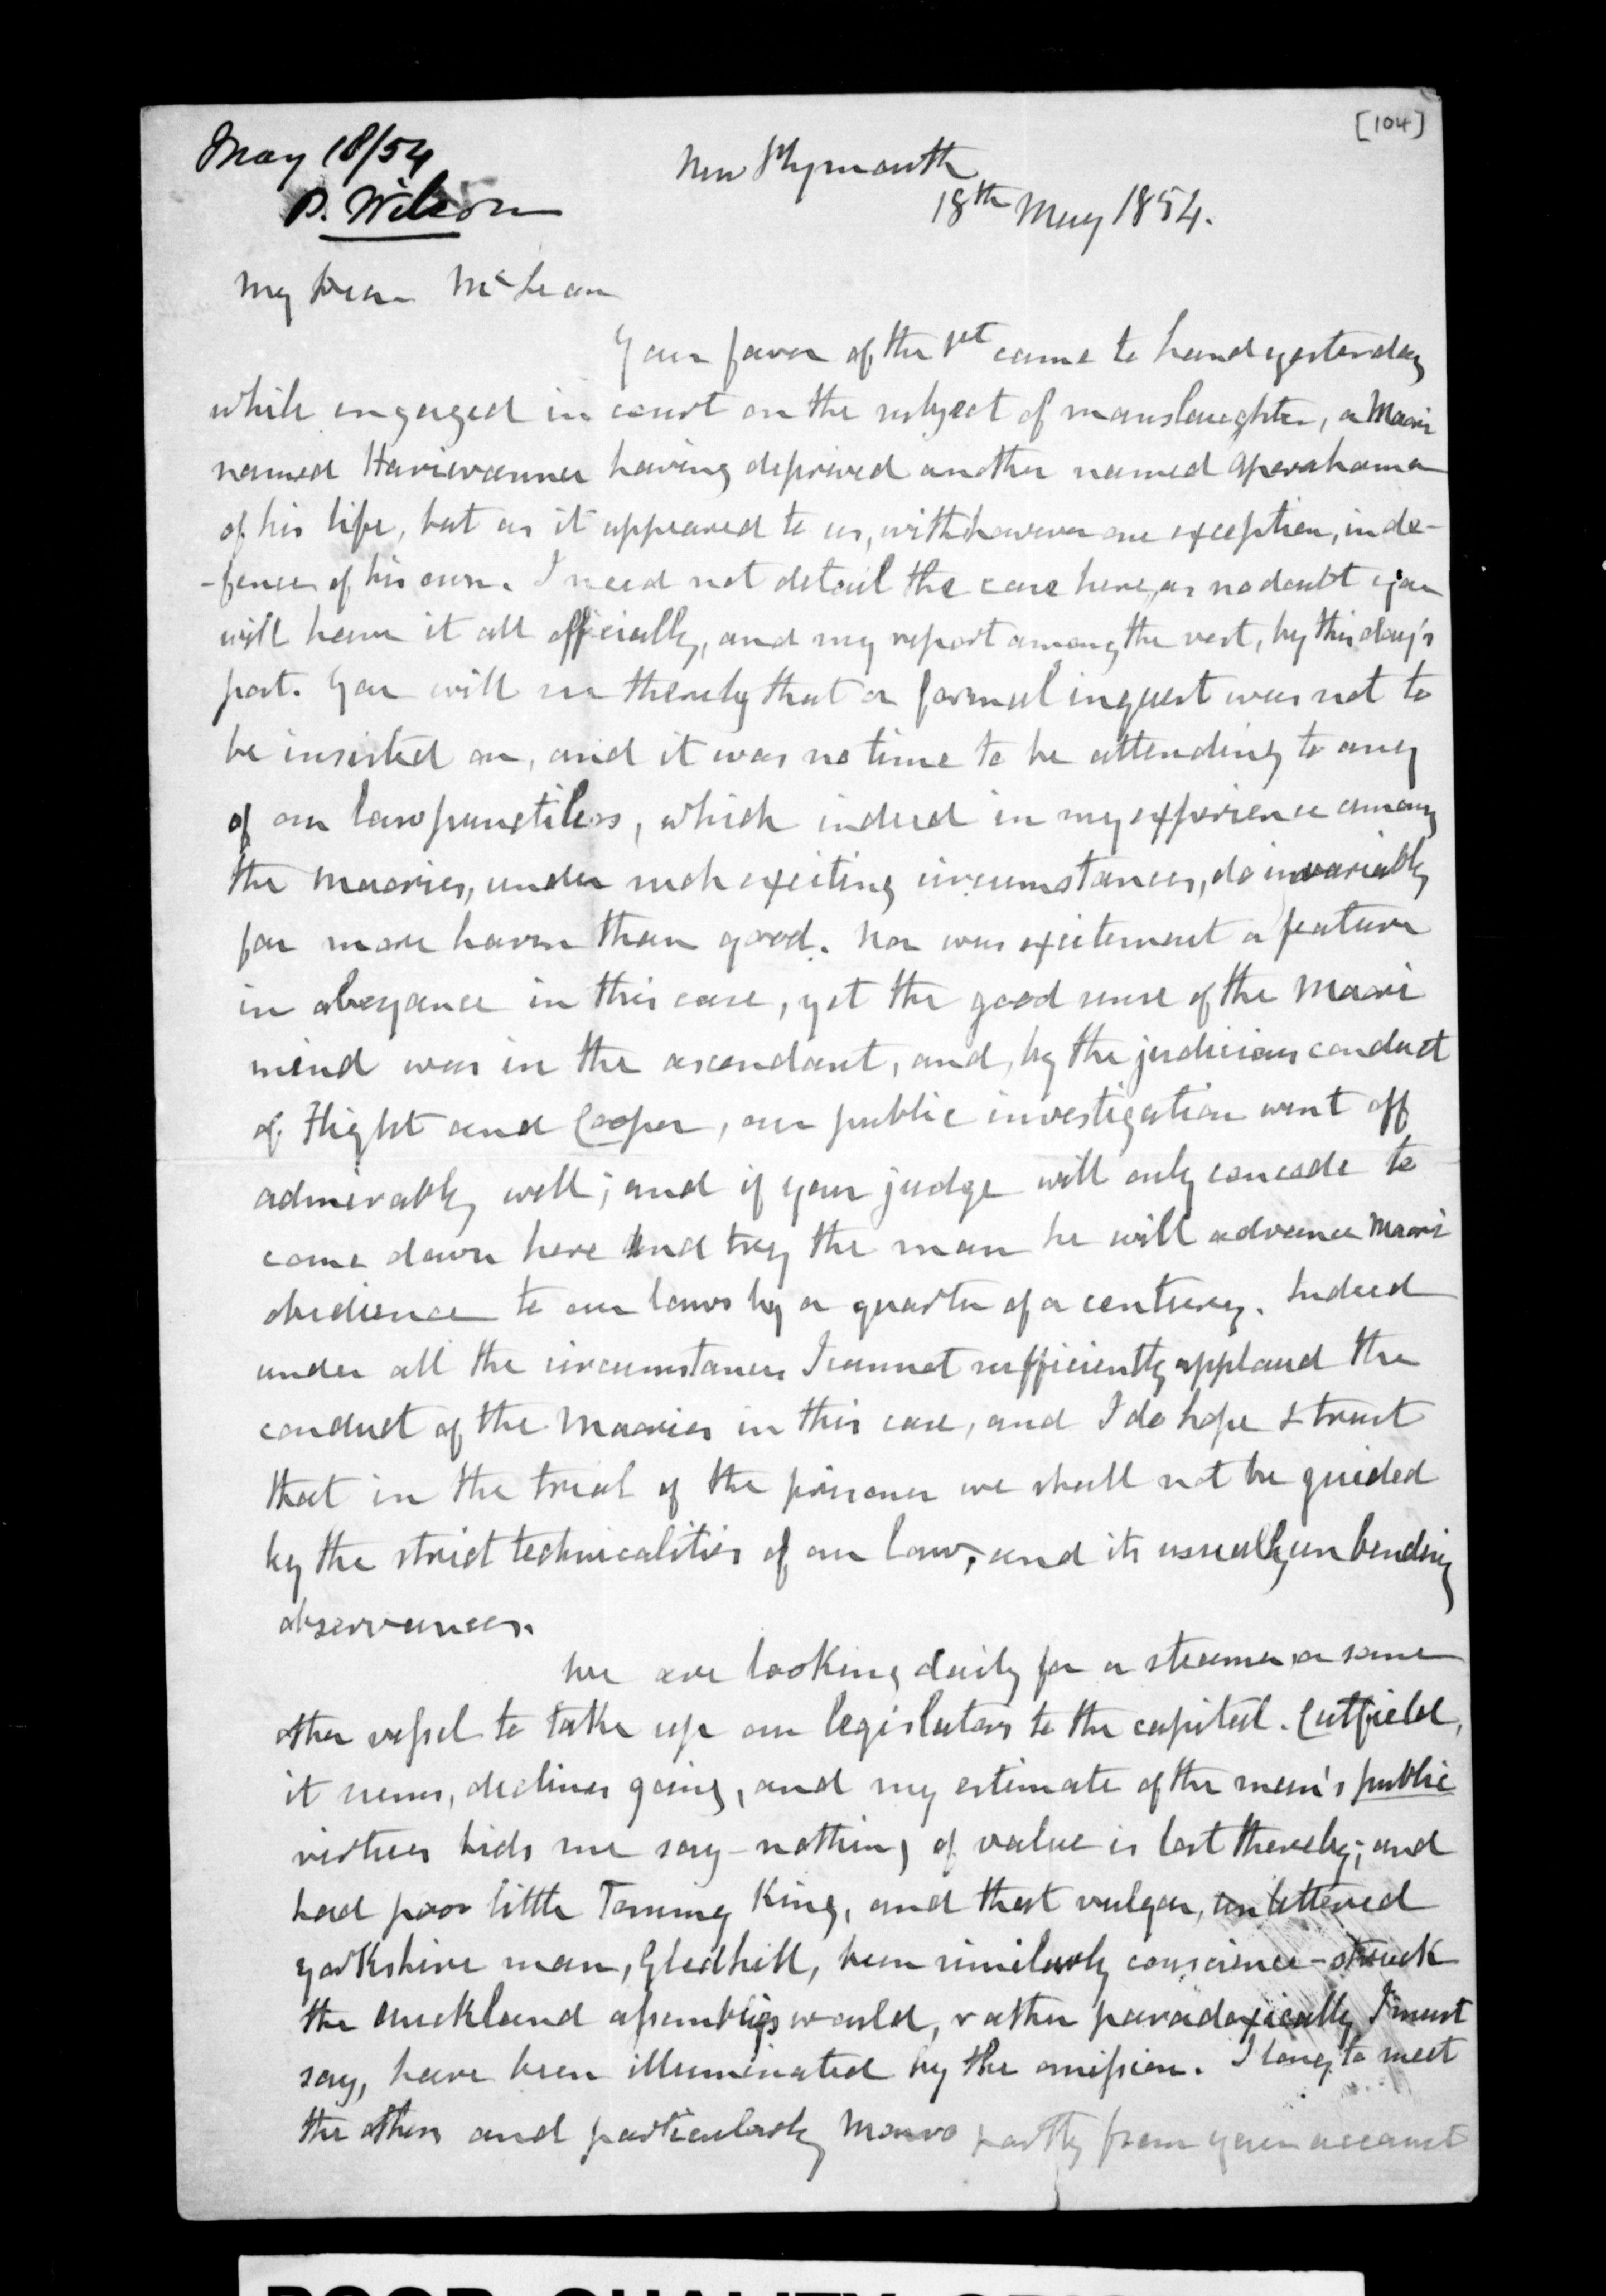 [104]
May 18/54
P. Wilson
New Plymouth
18th May 1854.
My Dear McLean
Your favor of the 1st came to hand yesterday
while engaged in court on the subject of manslaughter, a Maori
named Hariwanner having deprived another named Aperahama
of his life, but as it appeared to us, with however one exception, in de-
-fence of his own. I need not detail the case here, as no doubt you
will hear it all officially, and my report among the rest, by this day's
post. You will see thereby that a formal inquest was not to
be insisted on, and it was no time to be attending to any
of our law punctilios, which indeed in my experience among
the Maories, under such exciting circumstances, do invariably
far more harm than good. Nor was excitement a feature
in abeyance in this case, yet the good sense of the Maori
mind was in the ascendant, and, by the judicious conduct
of Flight and Cooper, our public investigation went off
admirably well; and if your judge will only concede to
come down here and try the man he will advance Maori
obedience to our laws by a quarter of a century. Indeed
under all the circumstances I cannot sufficiently applaud the
conduct of the Maories in this case, and I do hope & trust
that in the trial of the prisoner we shall not be guided
by the strict technicalities of our law, and its usually unbending
observances.
We are looking daily for a steamer or some
other vessel to take up our legislators to the capital. Cutfield,
it seems, declines going, and my estimate of the man's public
virtues bids me say - nothing of value is lost thereby; and
had poor little Tommy King, and that vulgar, unlettered
yorkshire man, Gledhill, been similarly conscience-struck
the Auckland assemblies would, rather paradoxically I must
say, have been illuminated by the omission. I long to meet
the others and particularly Monro partly from your account